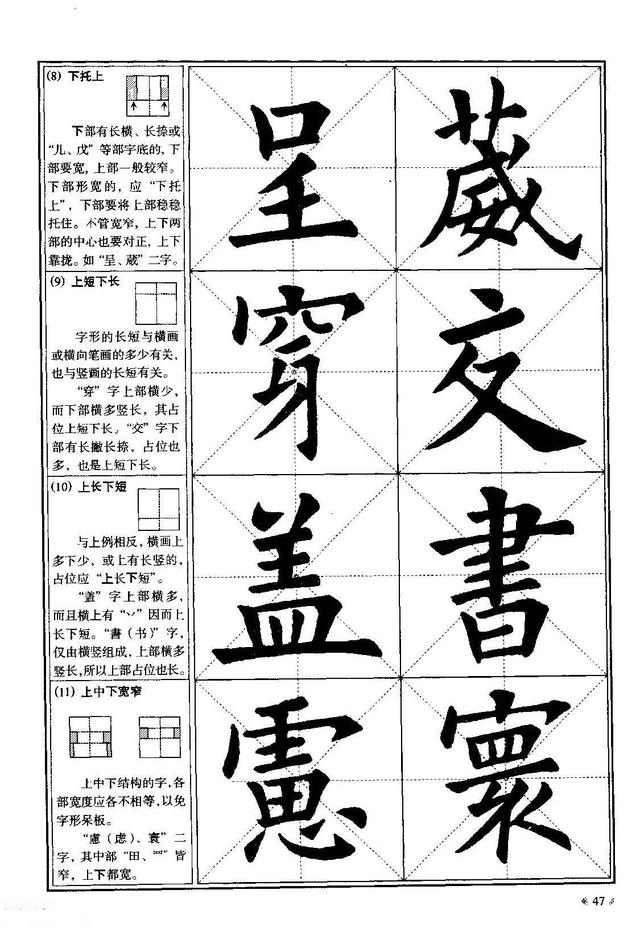 (8) 下托上
下部有长横、长捺或
“儿、戊”等部字底的，下
部要宽，上部一般较窄。
下部形宽的，应“下托
上”，下部要将上部稳稳
托住。不管宽窄，上下两
部的中心也要对正，上下
靠拢。如“呈、葳”二字。
呈 葳
(9) 上短下长
字形的长短与横画
或横向笔画的多少有关，
也与竖画的长短有关。
“穿”字上部横少，
而下部横多竖长，其占
位上短下长。“交”字下
部有长撇长捺，占位也
多，也是上短下长。
穿 交
(10) 上长下短
与上例相反，横画上
多下少，或上有长竖的，
占位应“上长下短”。
“盖”字上部横多，
而且横上有“丷”因而上
长下短。“書（书）”字，
仅由横竖组成，上部横多
竖长，所以上部占位也长。
盖 書
(11) 上中下宽窄
上中下结构的字，各
部宽度应各不相等，以免
字形呆板。
“慮（虑）、寰”二
字，其中部“田、罒”皆
窄，上下都宽。
慮 寰
47